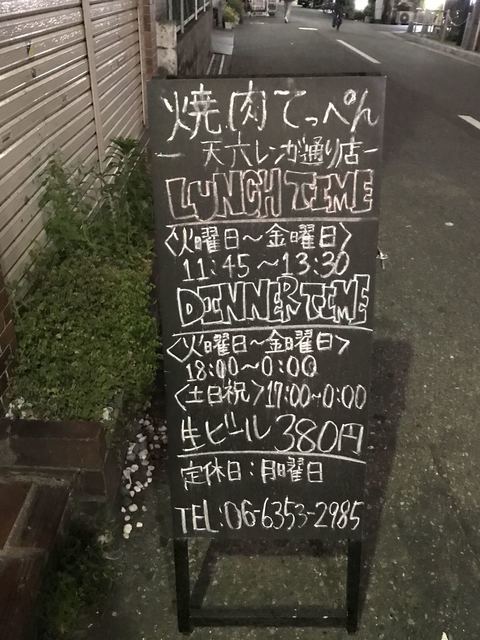 焼肉てっぺん
ー天六レンガ通り店ー
LUNCH TIME
<火曜日～金曜日>
11:45～13:30
DINNER TIME
<火曜日～金曜日>
18:00～0:00
<土日祝>17:00～0:00
生ビール380円
定休日:月曜日
TEL:06-6353-2985